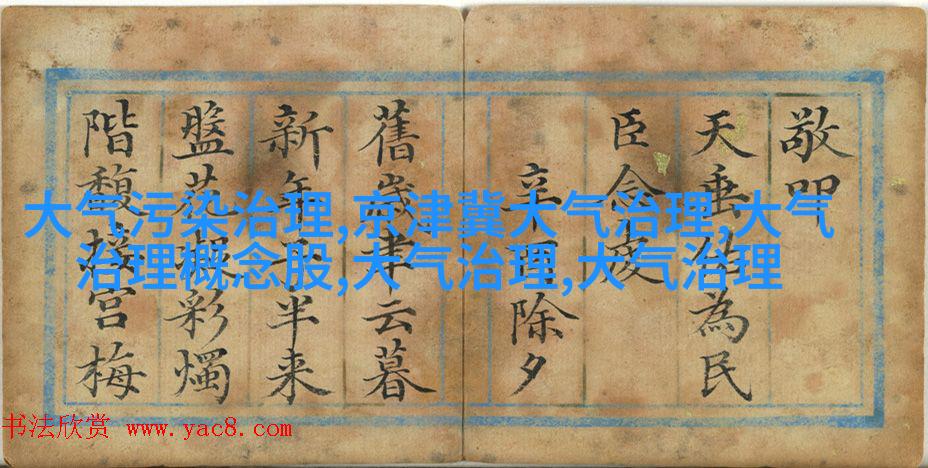 敬叩
天垂為民
臣念
辛酉除夕
舊歲聿云暮
新年半来
盤花彩燭
階馥接宮梅
大气污染治理,京津冀大气治理,大气
治理概念股,大气治理,大气治理
书法欣赏 www.yac8.com